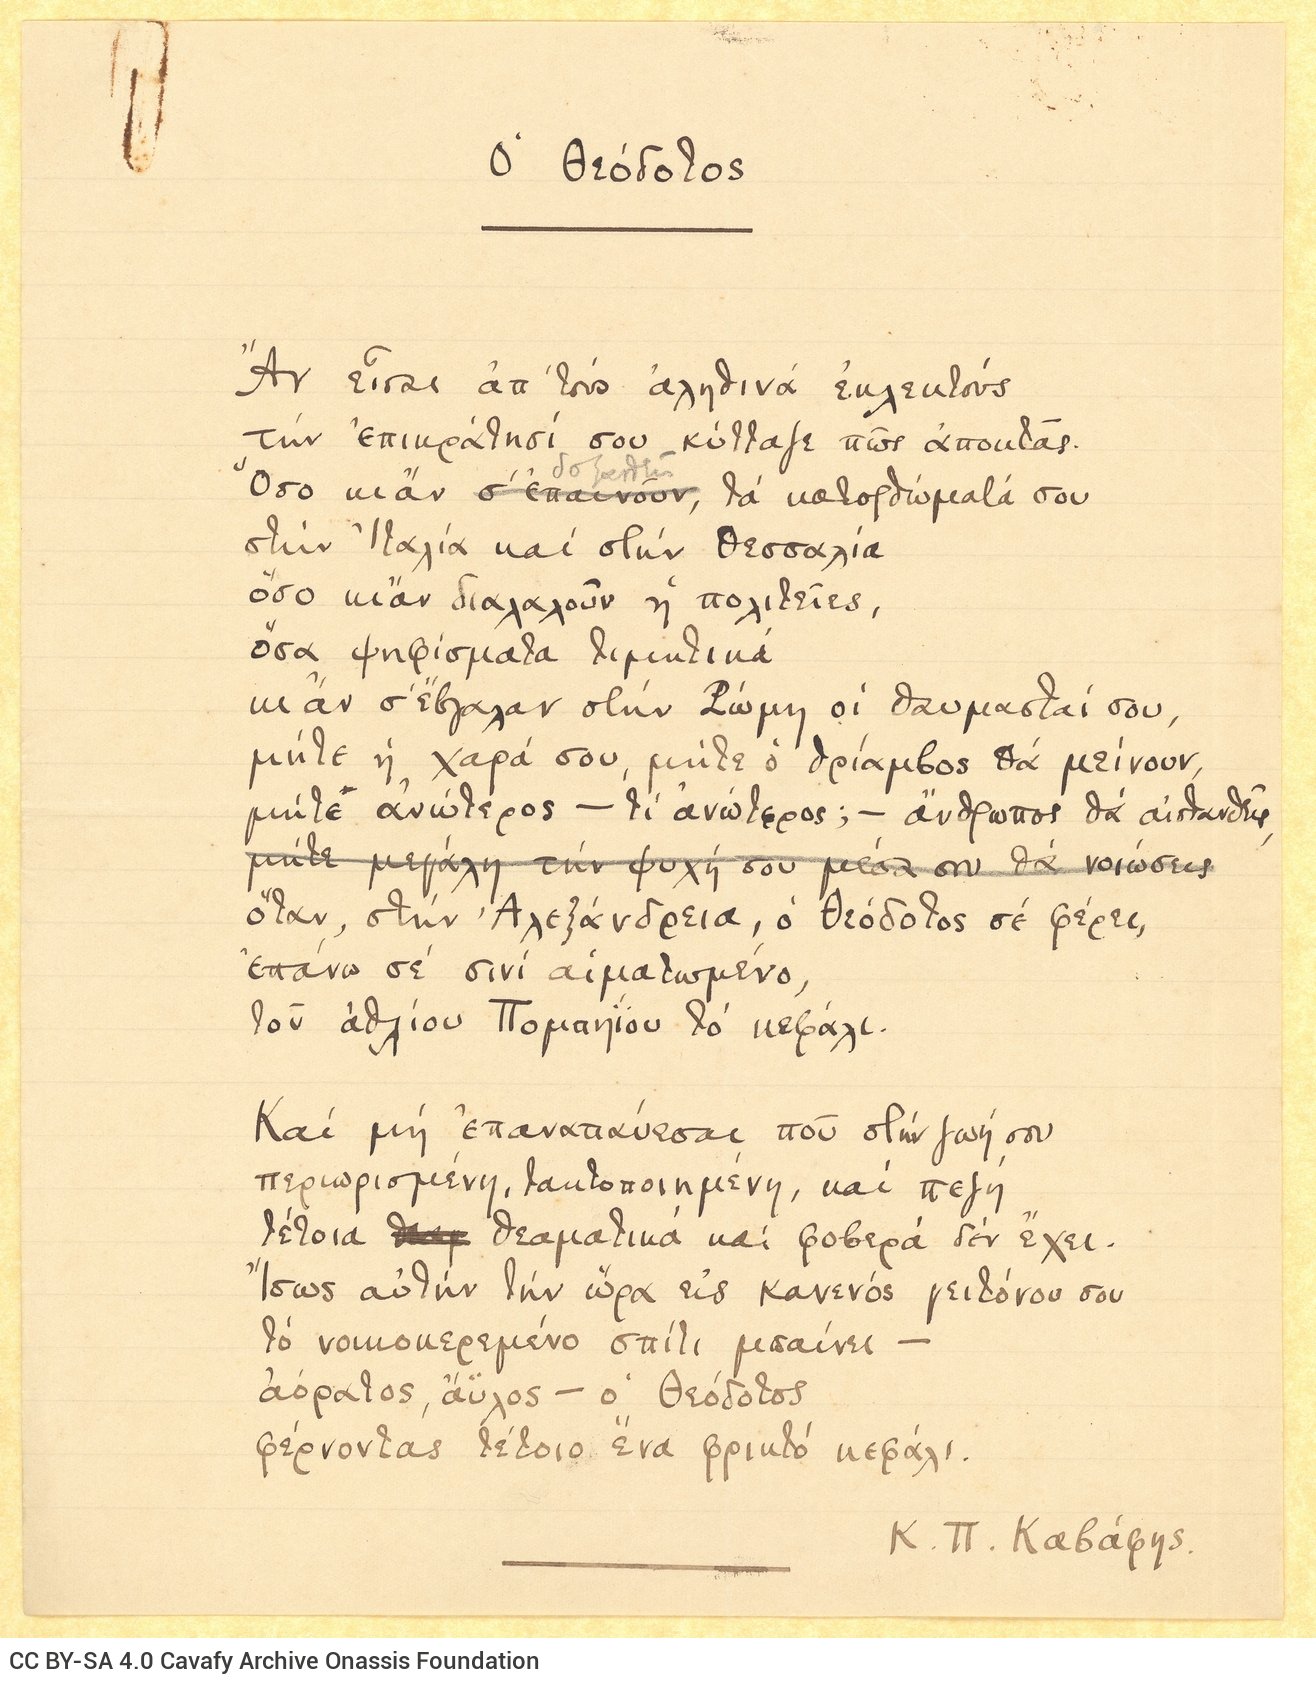 Ὁ Θεόδοτος
Ἄν εἶσαι ἀπ' τούς ἀληθινά ἐκλεκτούς
τήν ἐπικράτησί σου κύτταζε πῶς ἀποκτᾶς.
δοξασθεῖς
Ὅσο κι ἄν σ' ἐπαινοῦν, τά κατορθώματά σου
στήν Ἰταλία καί στήν Θεσσαλία
ὅσο κι ἄν διαλαλοῦν ἡ πολιτεῖες,
ὅσα ψηφίσματα τιμητικά
κι ἄν σ' ἔβγαλαν στήν Ρώμη οἱ θαυμασταί σου,
μήτε ἡ χαρά σου, μήτε ὁ θρίαμβος θά μείνουν,
μήτε ἀνώτερος — τί ἀνώτερος; — ἄνθρωπος θά αἰσθανθεῖς,
μήτε μεγάλη τήν ψυχή σου μέσα σου θά νοιώσεις
ὅταν, στήν Ἀλεξάνδρεια, ὁ Θεόδοτος σέ φέρει,
ἐπάνω σέ σινί αἱματωμένο,
τοῦ ἀθλίου Πομπηΐου τό κεφάλι.
Καί μή ἐπαναπαύεσαι ποῦ στήν ζωή σου
περιωρισμένη, τακτοποιημένη, καί πεζή
τέτοια θεαματικά καί φοβερά δέν ἔχει.
Ἴσως αὐτήν τήν ὥρα εἰς κανενός γειτόνου σου
τό νοικοκερεμένο σπίτι μπαίνει —
ἀόρατος, ἄϋλος — ὁ Θεόδοτος
φέρνοντας τέτοιο ἕνα φρικτό κεφάλι.
Κ. Π. Καβάφης.
CC BY-SA 4.0 Cavafy Archive Onassis Foundation